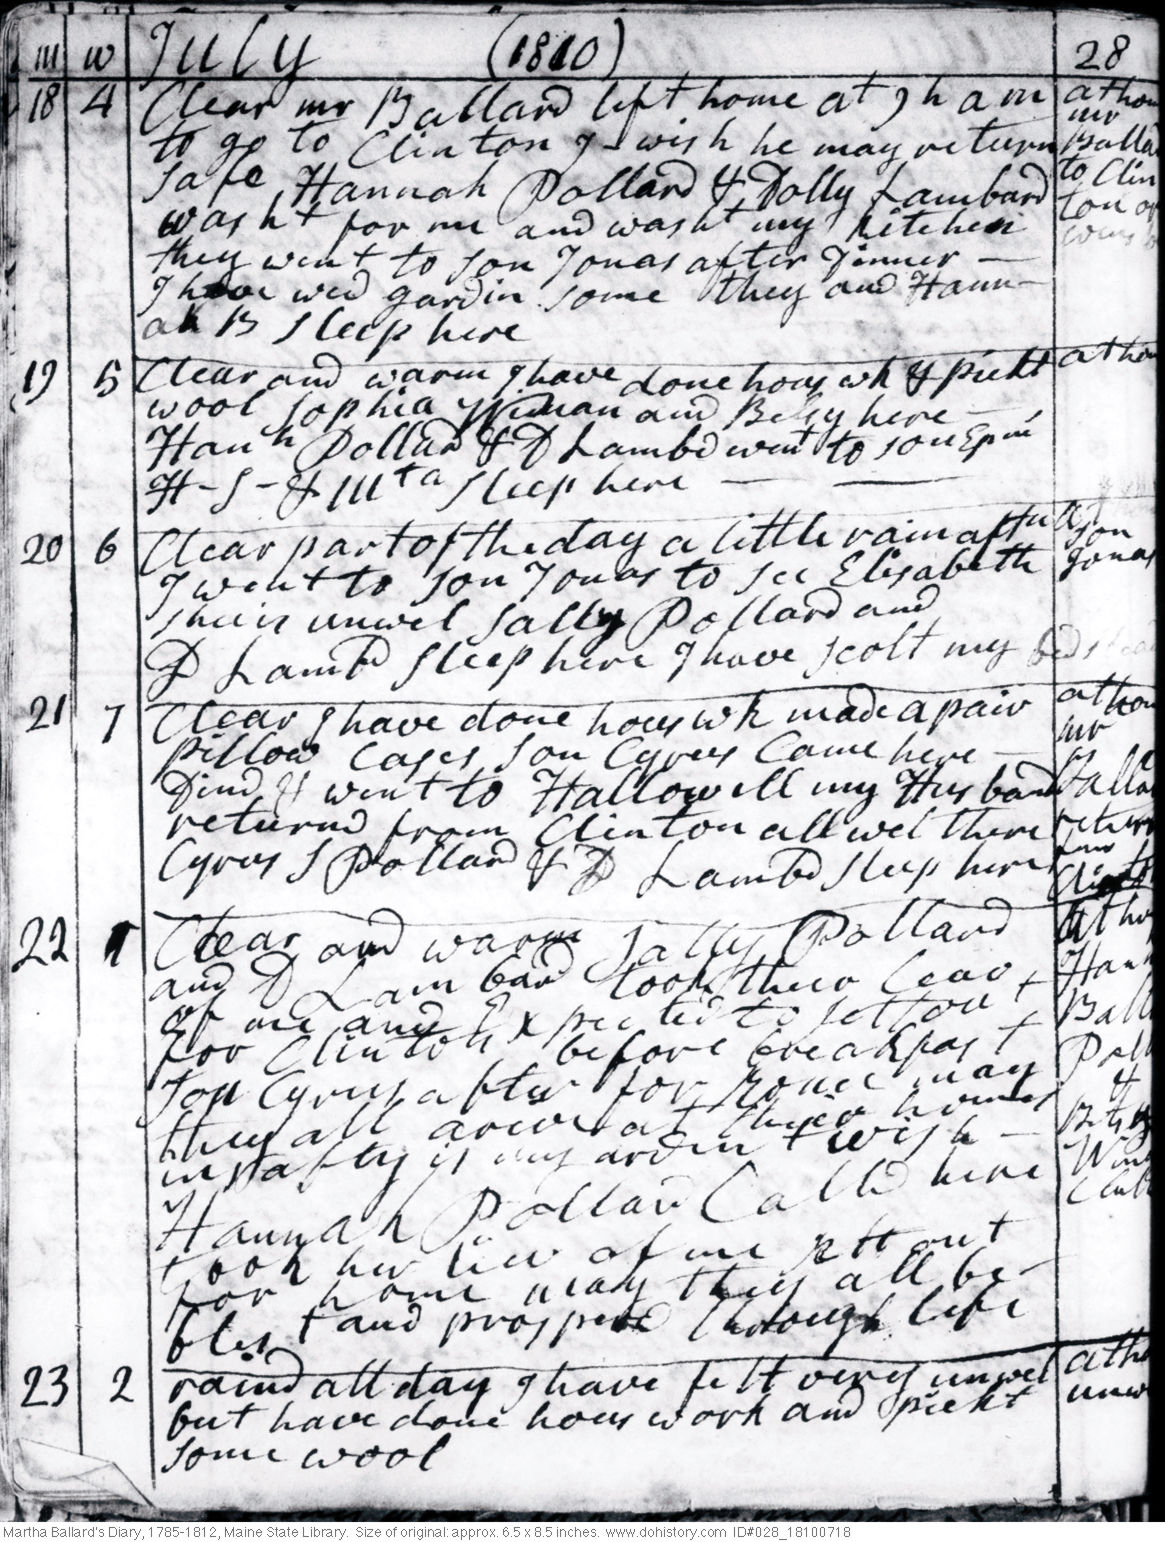 m w July (1810) 28
18 4 Clear mr Ballard left home at 9 h a m
to go to Clinton I wish he may return
safe Hannah Pollard & Dolly Lambard
washt for me and washt my kitchen
they went to son Jonas after Dinner —
I have wed gardin some they and Hann-
ah B sleep here
at hom
mr
Balla
to Clin
ton
19 5 Clear and warm I have done hous wk & pickt
wool Sophia and Betsy here —
Hanh Pollard & D Lambd went to son Epm
H - S - & Mta sleep here — —
at hom
20 6 Clear part of the day a little rain aftn
I went to son Jonas to see Elisabeth
shee is unwel Sally Pollard and
D Lambd sleep here I have scolt my bedstead
at
son
Jonas
21 7 Clear I have done hous wk made a pair
pillow Cases son Cyrus Came here —
Dind & went to Hallowell my Husband
returnd from Clinton all wel there
Cyrus S Pollard & D Lambd sleep here
at hom
mr
Balla
return
from
Clint
22 1 Clear and warm Sally Pollard
and D Lambard took their leav
of me and Expected to sett out
for Clinton before breakfast
son Cyrus after for home may
they all arive at their homes
in safty is my ardint wish —
Hannah Pollard Calld here
took her liev of me sett out
for home may they all be-
blest and prosperd through life
at ho
Hann
Ball
Poll
&
Betsy
23 2 raind all day I have felt very unwel
but have done hous work and pickt
some wool
at ho
unw
Martha Ballard's Diary, 1785-1812, Maine State Library. Size of original: approx. 6.5 x 8.5 inches. www.dohistory.com ID#028_18100718